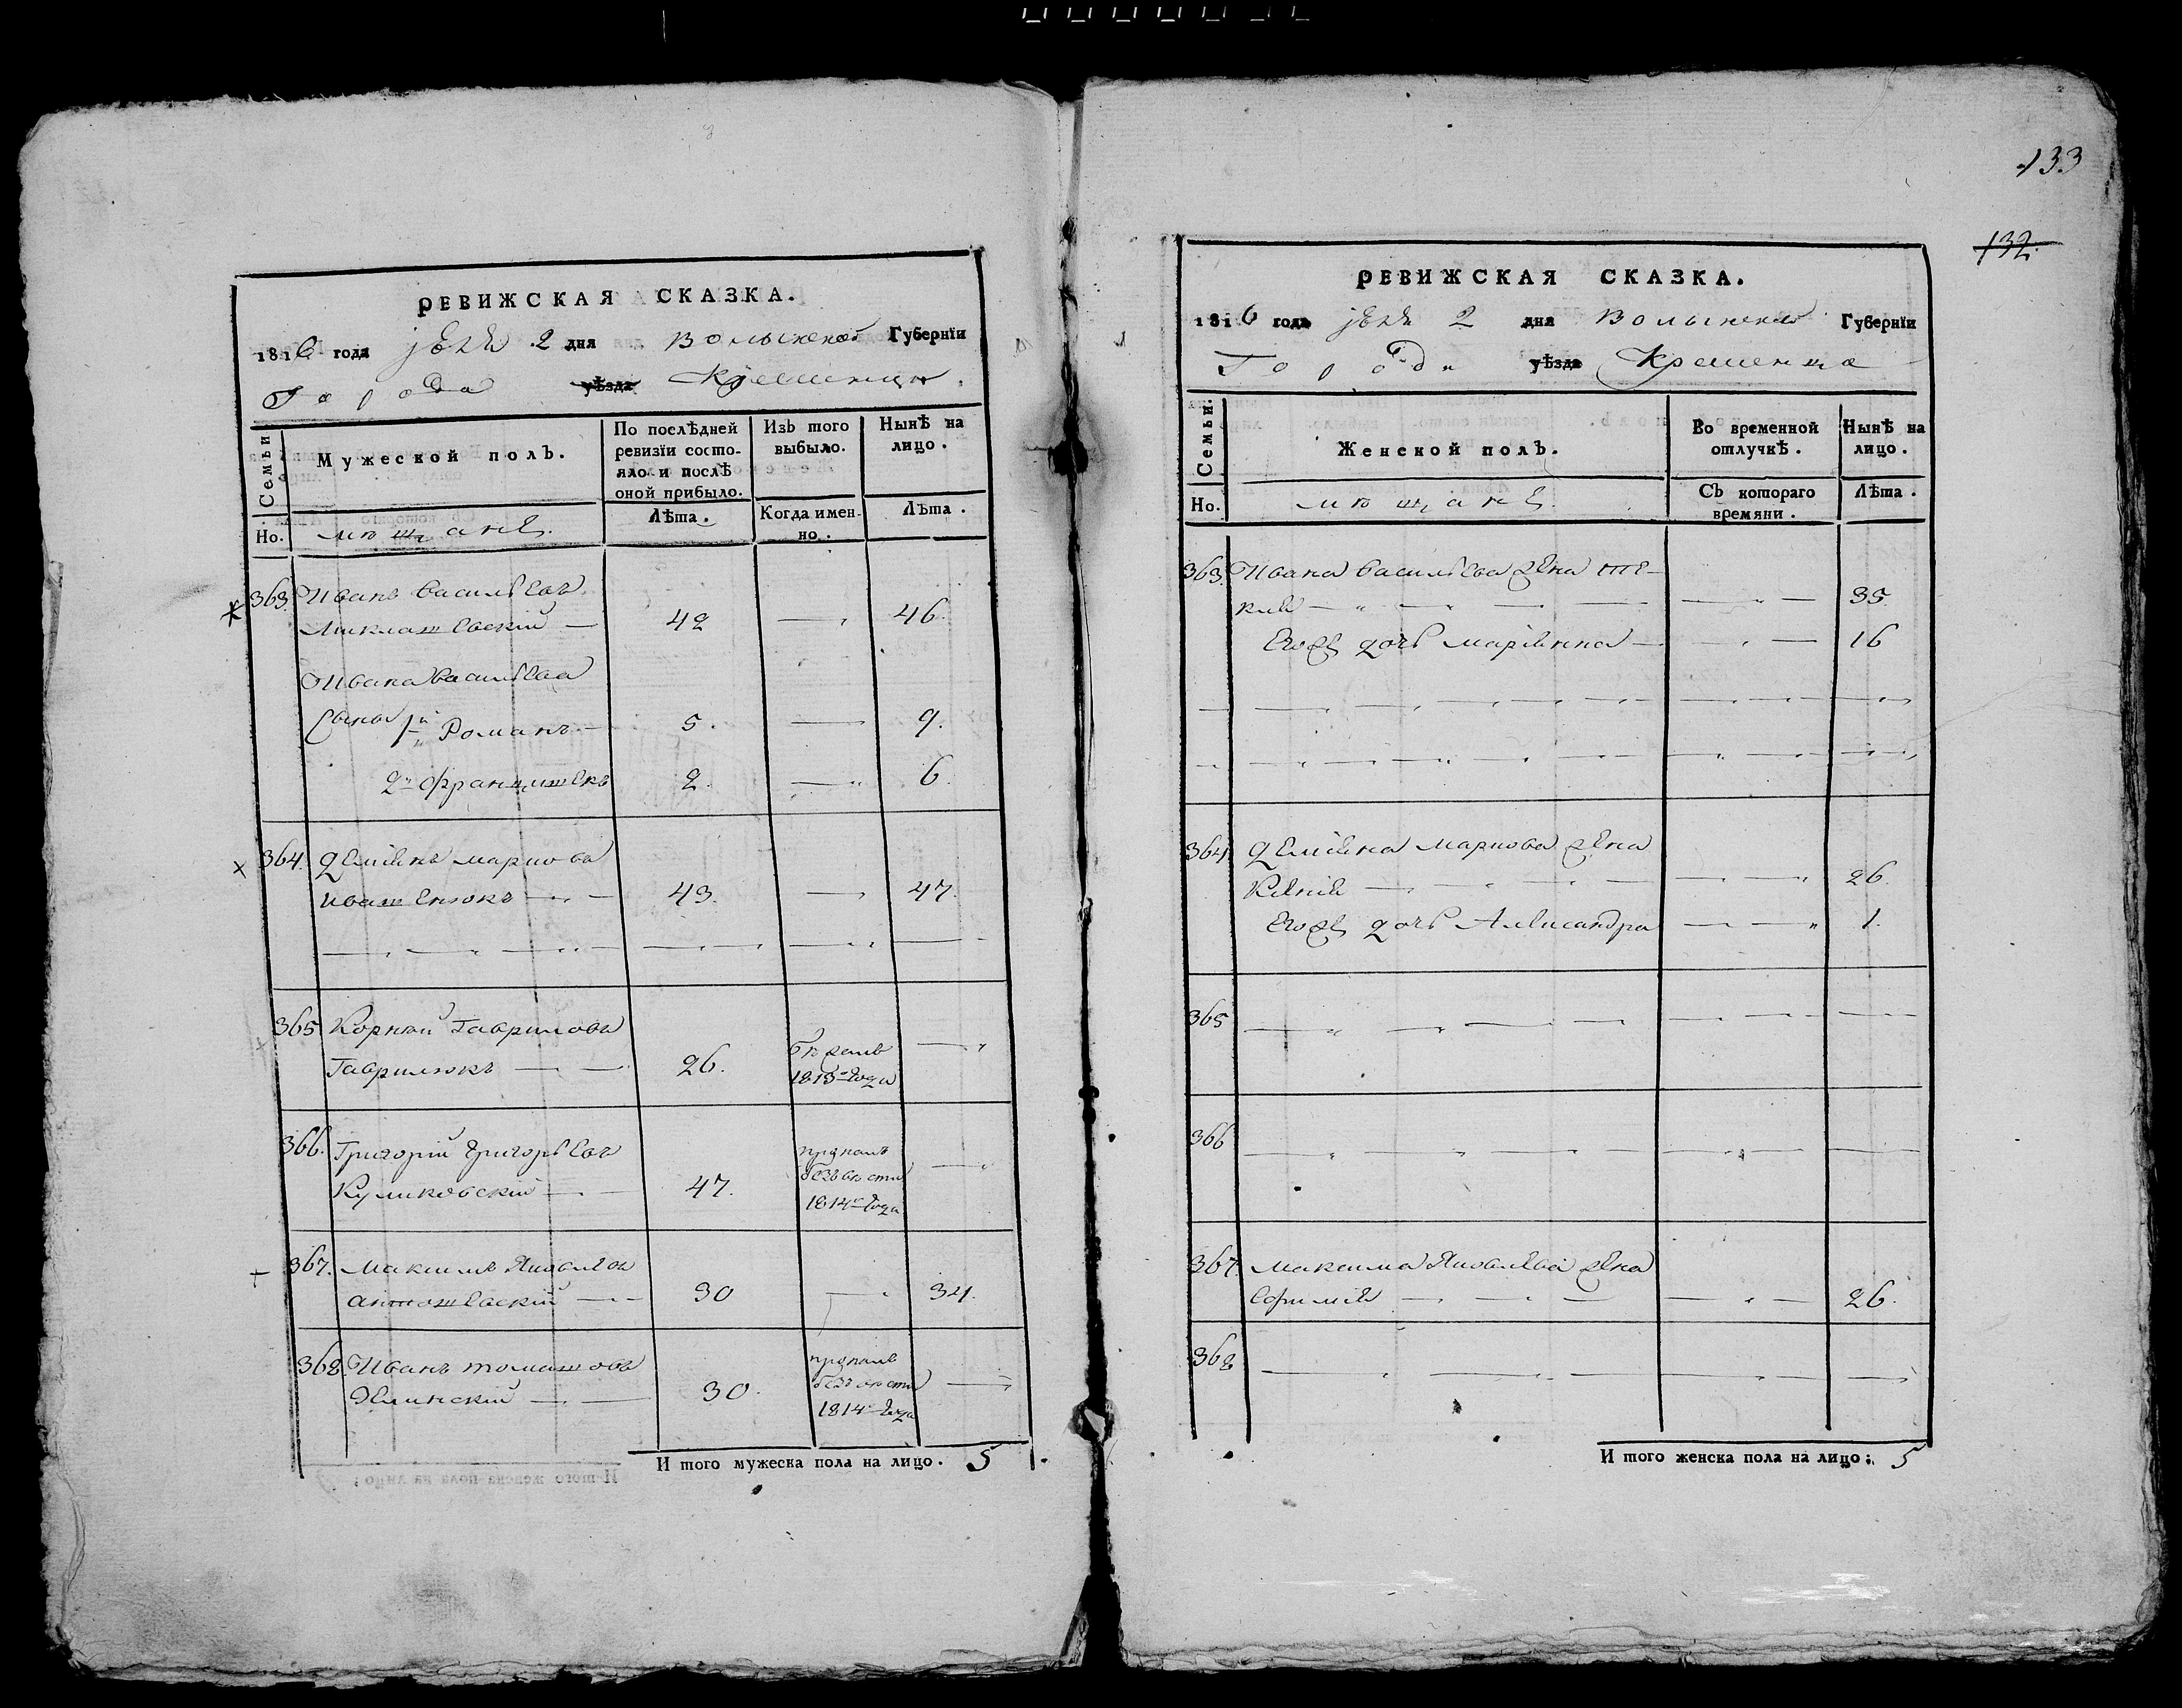 133
132.
РЕВИЖСКАЯ СКАЗКА.
1816 года 2 дня Волынской Губернїи
Города уѣзда Кременца
Семьи.
Мужеской полъ.
По послѣдней ревизїи состояло и послѣ оной прибыло.
Изъ того выбыло.
Нынѣ на лицо.
Но.
мѣщане.
Лѣта.
Когда именно.
Лѣта.
363. Иванъ Васильевъ
Миклашевскій — 42 — 46.
Ивана Васильева
Сыновья 1й Романъ — 5. — 9.
2й Францишекъ 2. — 6.
364. Демянъ Марковъ
Иващенюкъ — 43. — 47.
365 Корнѣй Гавриловъ
Гаврилюкъ — 26. бѣжалъ —
1813 года
366. Григорій Григорьевъ пропалъ
Куликовскій — 47. безъ вѣсти —
1814 года
367. Максимъ Яковлевъ
Антошевскій — 30 — 34.
368. Иванъ Томашовъ пропалъ
30. безъ вѣсти —
1814 года
И того мужеска пола на лицо. 5
РЕВИЖСКАЯ СКАЗКА.
1816 года 2 дня Волынской Губернїи
Города уѣзда Кременца
Семьи.
Женской полъ.
Во временной отлучкѣ.
Нынѣ на лицо.
Но.
мѣщане.
Съ котораго времяни.
Лѣта.
363. Ивана Васильева жена Те-
кля — 35.
Егожъ дочь Маріянна — 16
364 Демяна Маркова жена
Ксенія — 26.
Егожъ дочь Александра — 1.
365 —
366 —
367. Максима Яковлева жена
Софимія — 26.
368 —
И того женска пола на лицо: 5